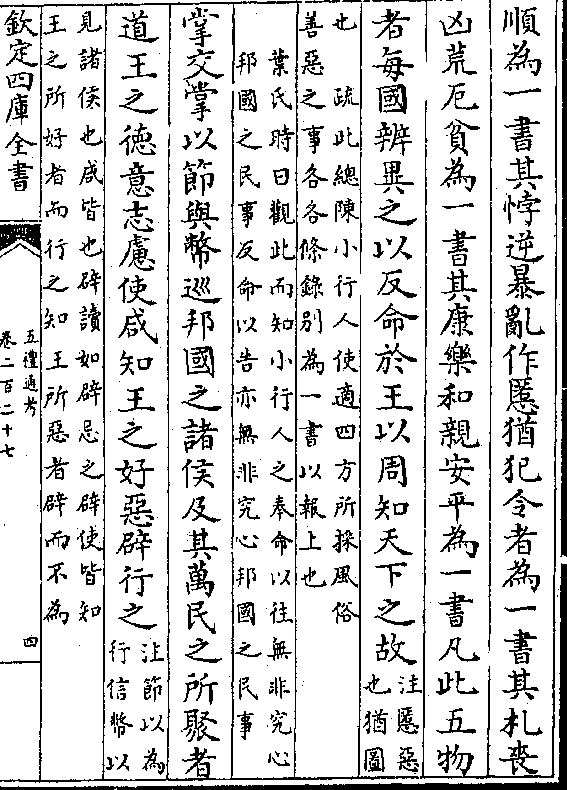 順為一書其悖逆暴亂作慝猶犯令者為一書其札喪
凶荒厄貧為一書其康樂和親安平為一書凡此五物
者每國辨異之以反命於王以周知天下之故
注慝惡
也猶圖
也　疏此總陳小行人使適四方所採風俗
善惡之事各各條錄別為一書以報上也
葉氏時曰觀此而知小行人之奉命以往無非究心
邦國之民事反命以告亦無非究心邦國之民事
掌交掌以節與幣巡邦國之諸侯及其萬民之所聚者
道王之德意志慮使咸知王之好惡辟行之
注節以為
行信幣以
見諸侯也咸皆也辟讀如辟忌之辟使皆知
王之所好者而行之知王所惡者辟而不為
欽定四庫全書
五禮通考
卷二百二十七
四